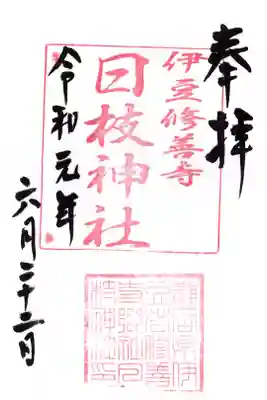 奉拝
伊豆修善寺
日枝神社
令和元年
六月二十二日